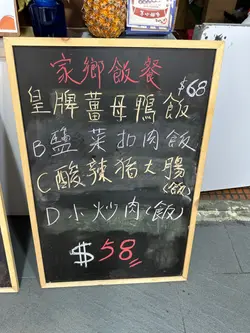 家鄉飯餐
$68
皇牌薑母鴨飯
B鹽菜扣肉飯
C酸辣豬大腸
(飯)
D小炒肉(飯)
$58